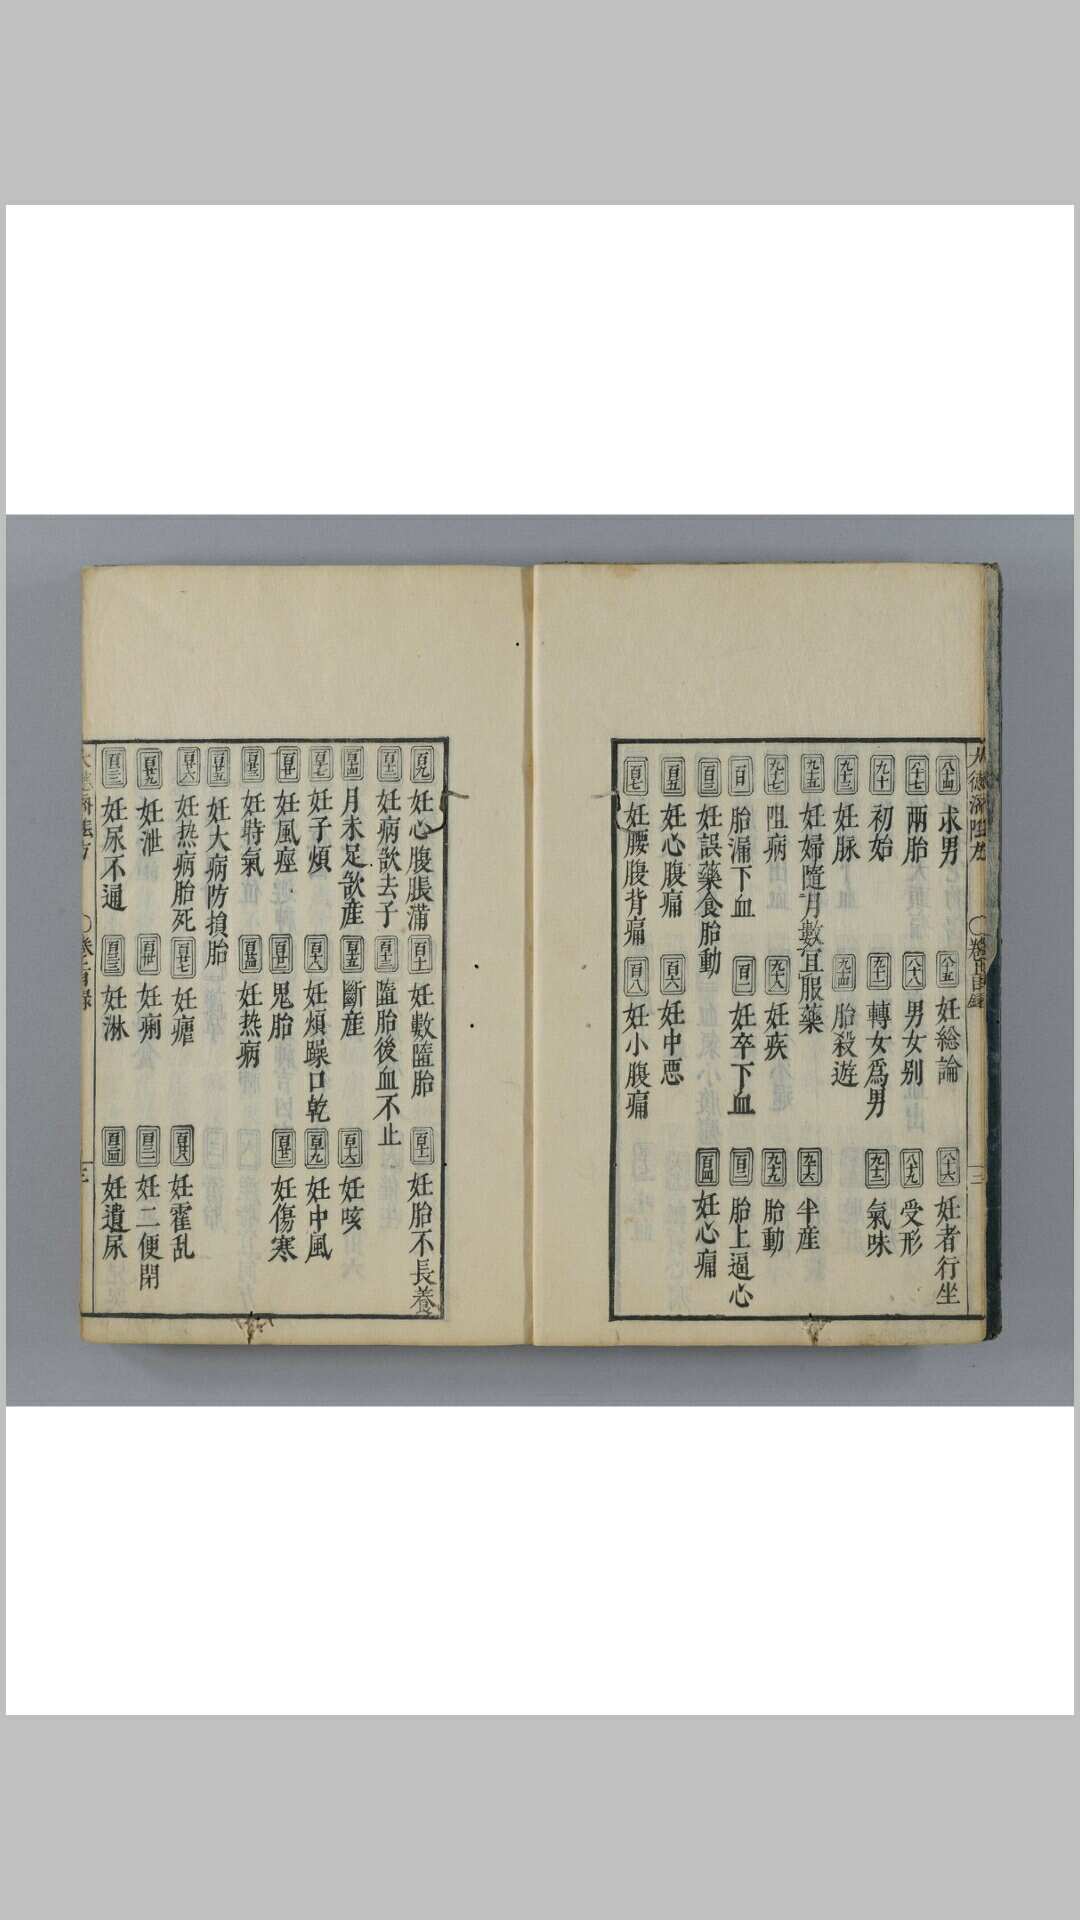 八十四 求男 八十五 妊総論 八十六 妊者行坐
八十七 兩胎 八十八 男女别 八十九 受形
九十 初始 九十一 轉女爲男 九十二 氣味
九十三 妊脉 九十四 胎殺遊
九十五 妊婦隨月數宜服藥 九十六 半産
九十七 阻病 九十八 妊疾 九十九 胎動
百 胎漏下血 百一 妊卒下血 百二 胎上逼心
百三 妊誤藥食胎動 百四 妊心痛
百五 妊心腹痛 百六 妊中悪
百七 妊腰腹背痛 百八 妊小腹痛
百九 妊心腹脹滿 百十 妊數墮胎 百十一 妊胎不長養
百十二 妊病欲去子 百十三 墮胎後血不止
百十四 月未足欲産 百十五 斷産 百十六 妊咳
百十七 妊子煩 百十八 妊煩躁口乾 百十九 妊中風
百廿 妊風痙 百廿一 鬼胎 百廿二 妊傷寒
百廿三 妊時氣 百廿四 妊热病
百廿五 妊大病防損胎
百廿六 妊热病胎死 百廿七 妊瘧 百廿八 妊霍乱
百廿九 妊泄 百卅 妊痢 百三一 妊二便閉
百三二 妊尿不通 百三三 妊淋 百三四 妊遺尿